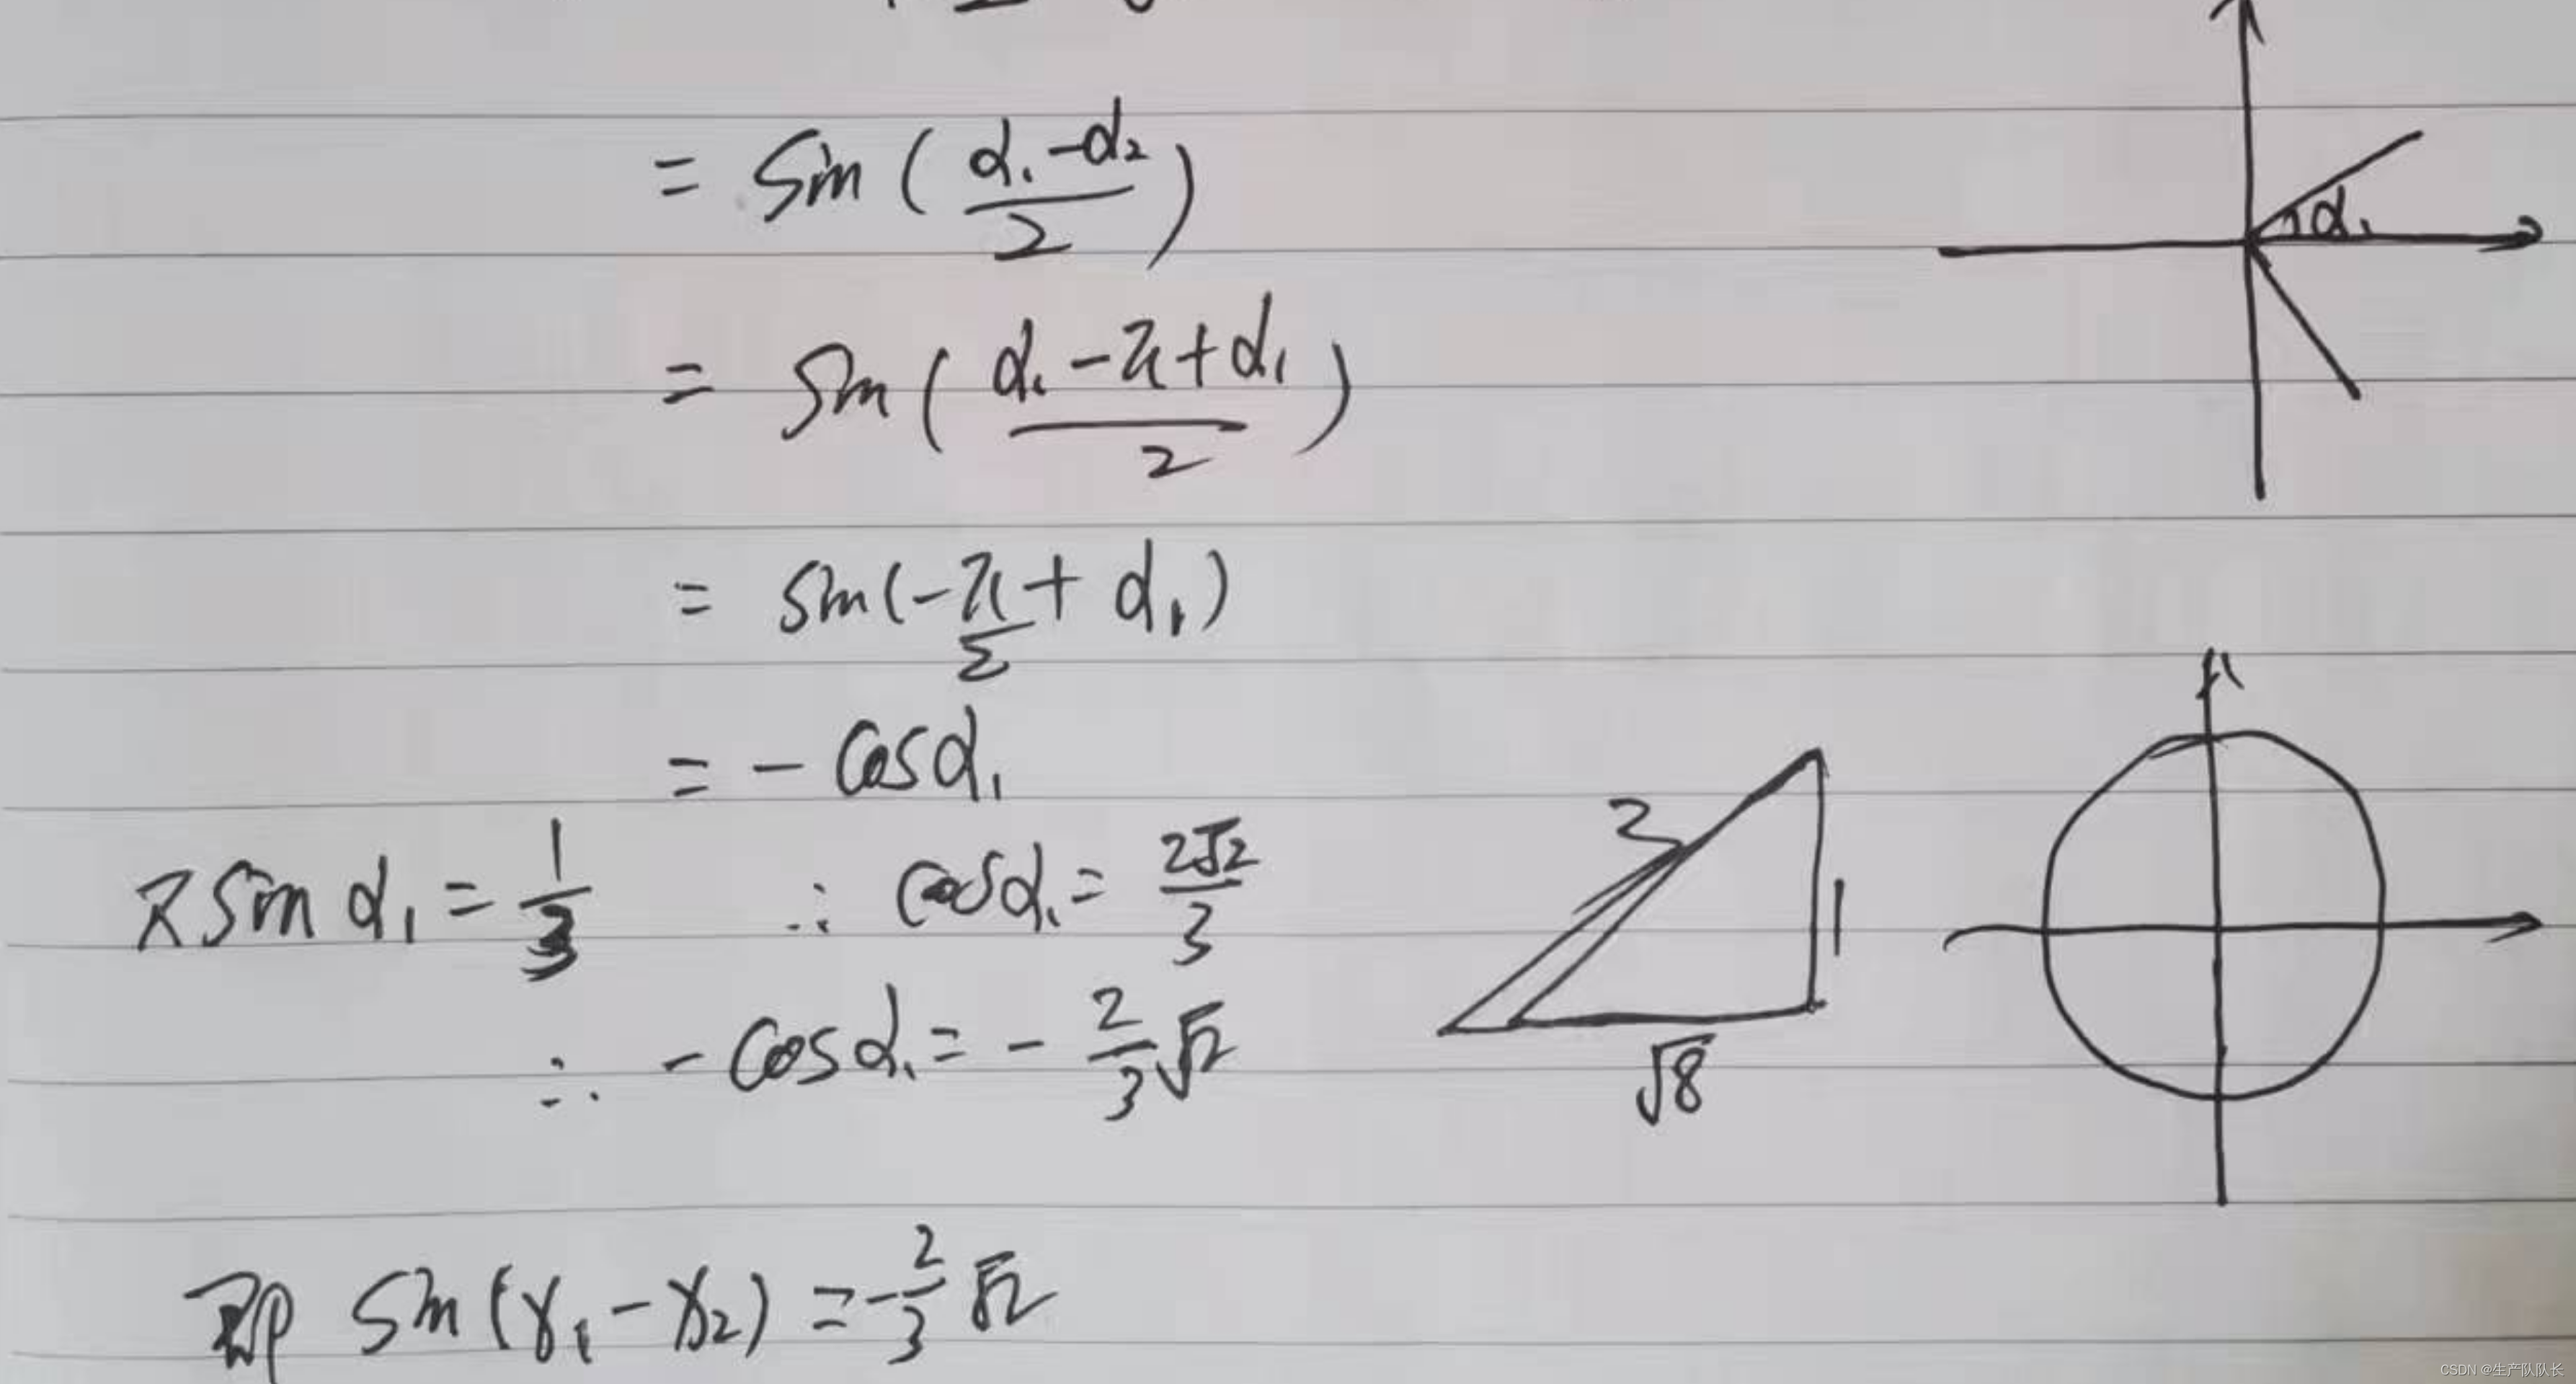 = sin(\frac{α₁-α₂}{2})
α₁
= sin(\frac{α₁-π+α₁}{2})
= sin(-\frac{π}{2}+α₁)
= -cosα₁
又sinα₁ = \frac{1}{3} ∴ cosα₁ = \frac{2√2}{3}
3
1
√8
∴ -cosα₁ = -\frac{2}{3}√2
即 sin(x₁-x₂) = -\frac{2}{3}√2
CSDN @生产队队长